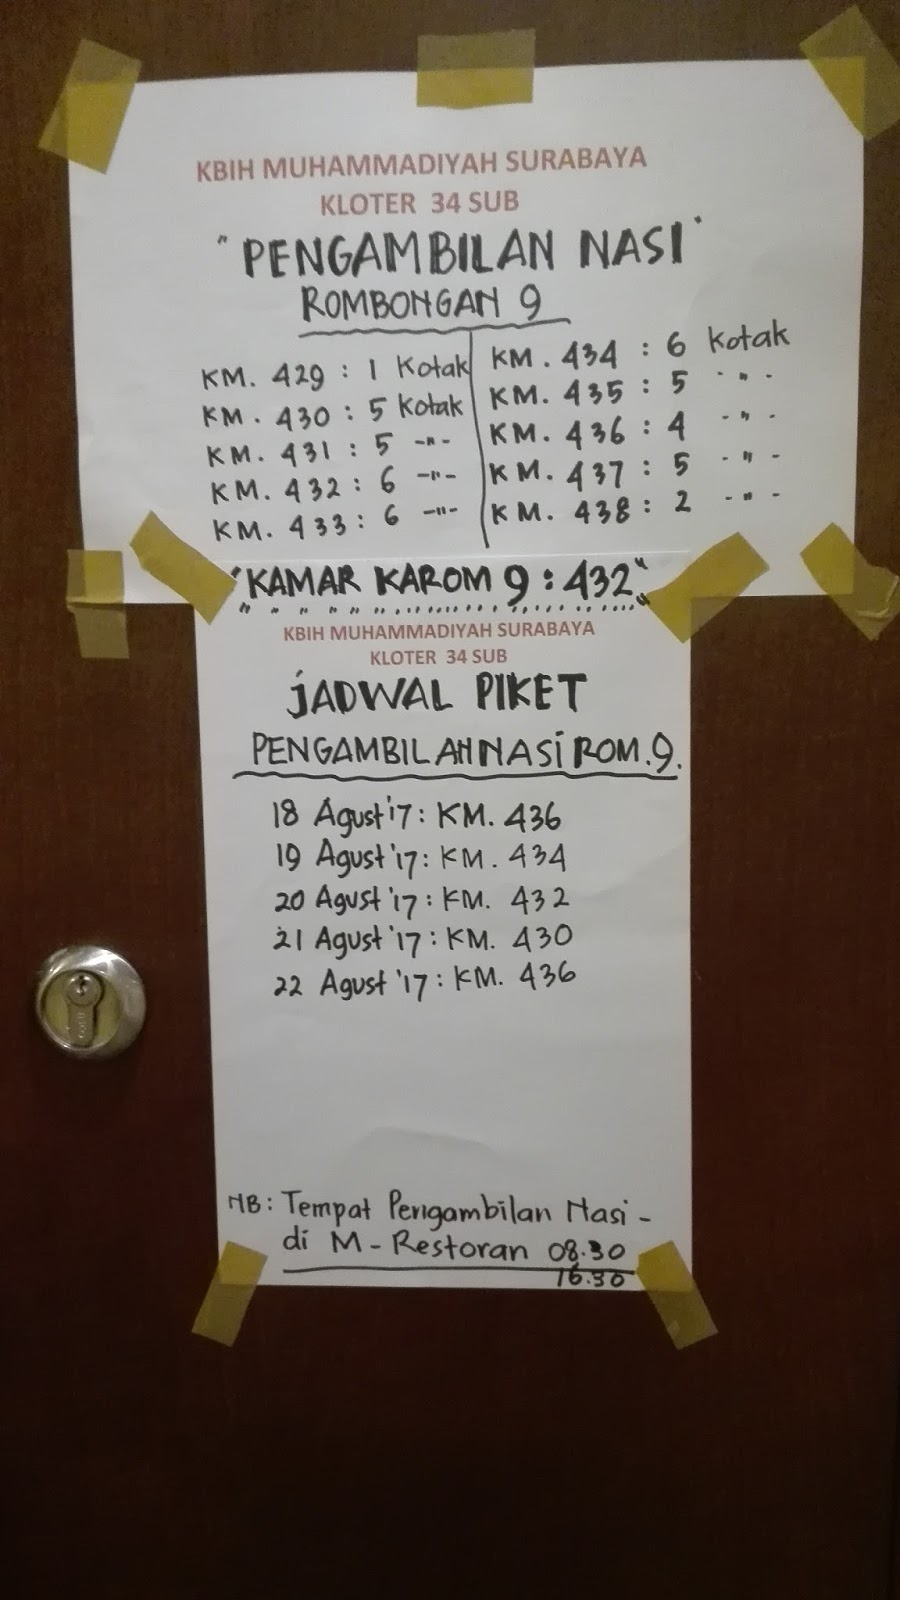 KBIH MUHAMMADIYAH SURABAYA
KLOTER 34 SUB
"PENGAMBILAN NASI"
ROMBONGAN 9
KM. 429 : 1 Kotak
KM. 430 : 5 Kotak
KM. 431 : 5 -"-
KM. 432 : 6 -"-
KM. 433 : 6 -"-
KM. 434 : 6 Kotak
KM. 435 : 5 -"-
KM. 436 : 4 -"-
KM. 437 : 5 -"-
KM. 438 : 2 -"-
"KAMAR KAROM 9 : 432"
KBIH MUHAMMADIYAH SURABAYA
KLOTER 34 SUB
JADWAL PIKET
PENGAMBILAN NASI ROM. 9.
18 Agust '17 : KM. 436
19 Agust '17 : KM. 434
20 Agust '17 : KM. 432
21 Agust '17 : KM. 430
22 Agust '17 : KM. 436
NB : Tempat Pengambilan Nasi -
di M - Restoran 08.30
16.30